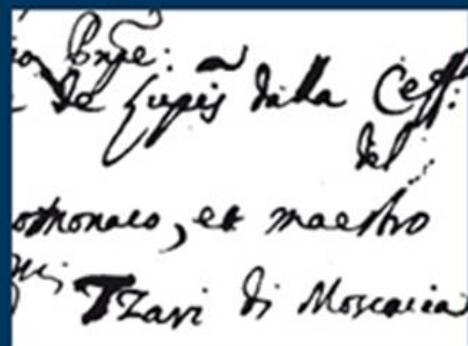 de Lupis dalla Cess:
del
omonaco, et maestro
Tzari di Moscovia